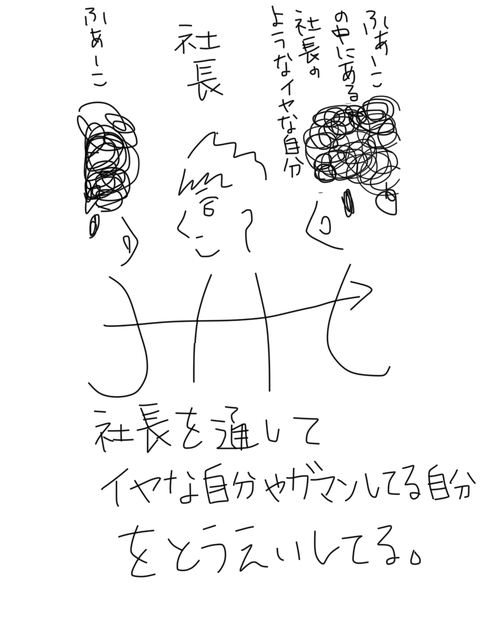 ふぁーこ
の中にある
社長の
ようなイヤな自分
社長
ふぁーこ
社長を通して
イヤな自分やガマンしてる自分
をとうえいしてる。